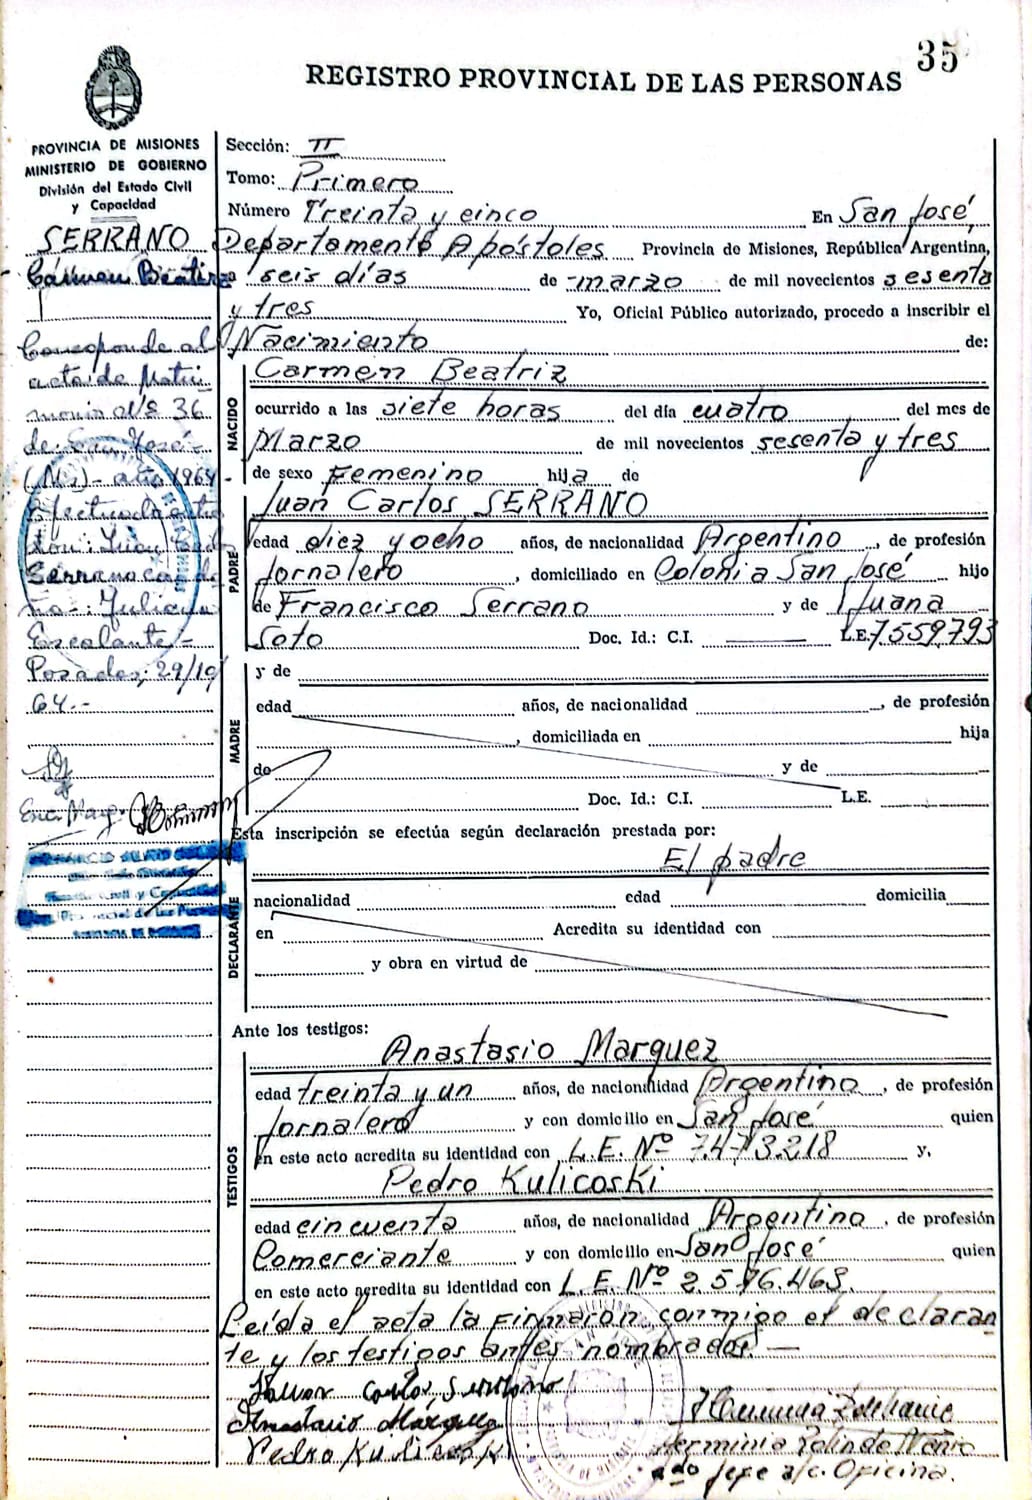 35
REGISTRO PROVINCIAL DE LAS PERSONAS
PROVINCIA DE MISIONES
MINISTERIO DE GOBIERNO
División del Estado Civil
y Capacidad
SERRANO
Carmen Beatriz
Corresponde al
acta de Matri
monio Nº 36
de: San José-
(Ms)- año 1964-
Efectuado entre
Don: Juan
Serrano con do
ña: Juliana
Escalante-
Posadas, 29/10/
64.-
Enc. Marg.
Sección: II
Tomo: Primero
Número Treinta y cinco En San José,
Departamento Apóstoles Provincia de Misiones, República Argentina,
a seis días de marzo de mil novecientos sesenta
y tres Yo, Oficial Público autorizado, procedo a inscribir el
Nacimiento de:
NACIDO
Carmen Beatriz
ocurrido a las siete horas del día cuatro del mes de
Marzo de mil novecientos sesenta y tres
de sexo Femenino hija de
PADRE
Juan Carlos SERRANO
edad diez y ocho años, de nacionalidad Argentino, de profesión
Jornalero, domiciliado en Colonia San José hijo
de Francisco Serrano y de Juana
Soto Doc. Id.: C.I. L.E. 7.559.793
MADRE
y de
edad años, de nacionalidad , de profesión
, domiciliada en hija
de y de
Doc. Id.: C.I. L.E.
Esta inscripción se efectúa según declaración prestada por:
El padre
DECLARANTE
nacionalidad edad domicilia
en Acredita su identidad con
y obra en virtud de
Ante los testigos:
TESTIGOS
Anastasio Marquez
edad treinta y un años, de nacionalidad Argentino, de profesión
Jornalero y con domicilio en San José quien
en este acto acredita su identidad con L.E. Nº 7.473.218 y,
Pedro Kulicoski
edad cincuenta años, de nacionalidad Argentino, de profesión
Comerciante y con domicilio en San José quien
en este acto acredita su identidad con L.E. Nº 2.576.463.
Leída el acta la Firmaron conmigo el declaran
te y los testigos antes nombrados.—
Juan Carlos Serrano
Anastacio Márquez
Pedro Kulicoski
Jefe a/c. Oficina.